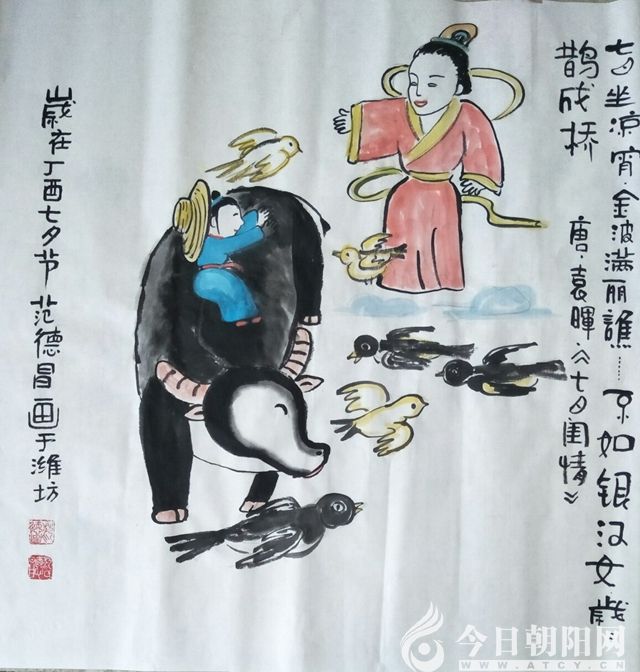 七夕坐凉宵·金波满丽谯……不如银汉女·岁岁
鹊成桥 唐·袁晖《七夕闺情》
岁在丁酉七夕节范德昌画于潍坊
今日朝阳网
WWW.ATCY.CN